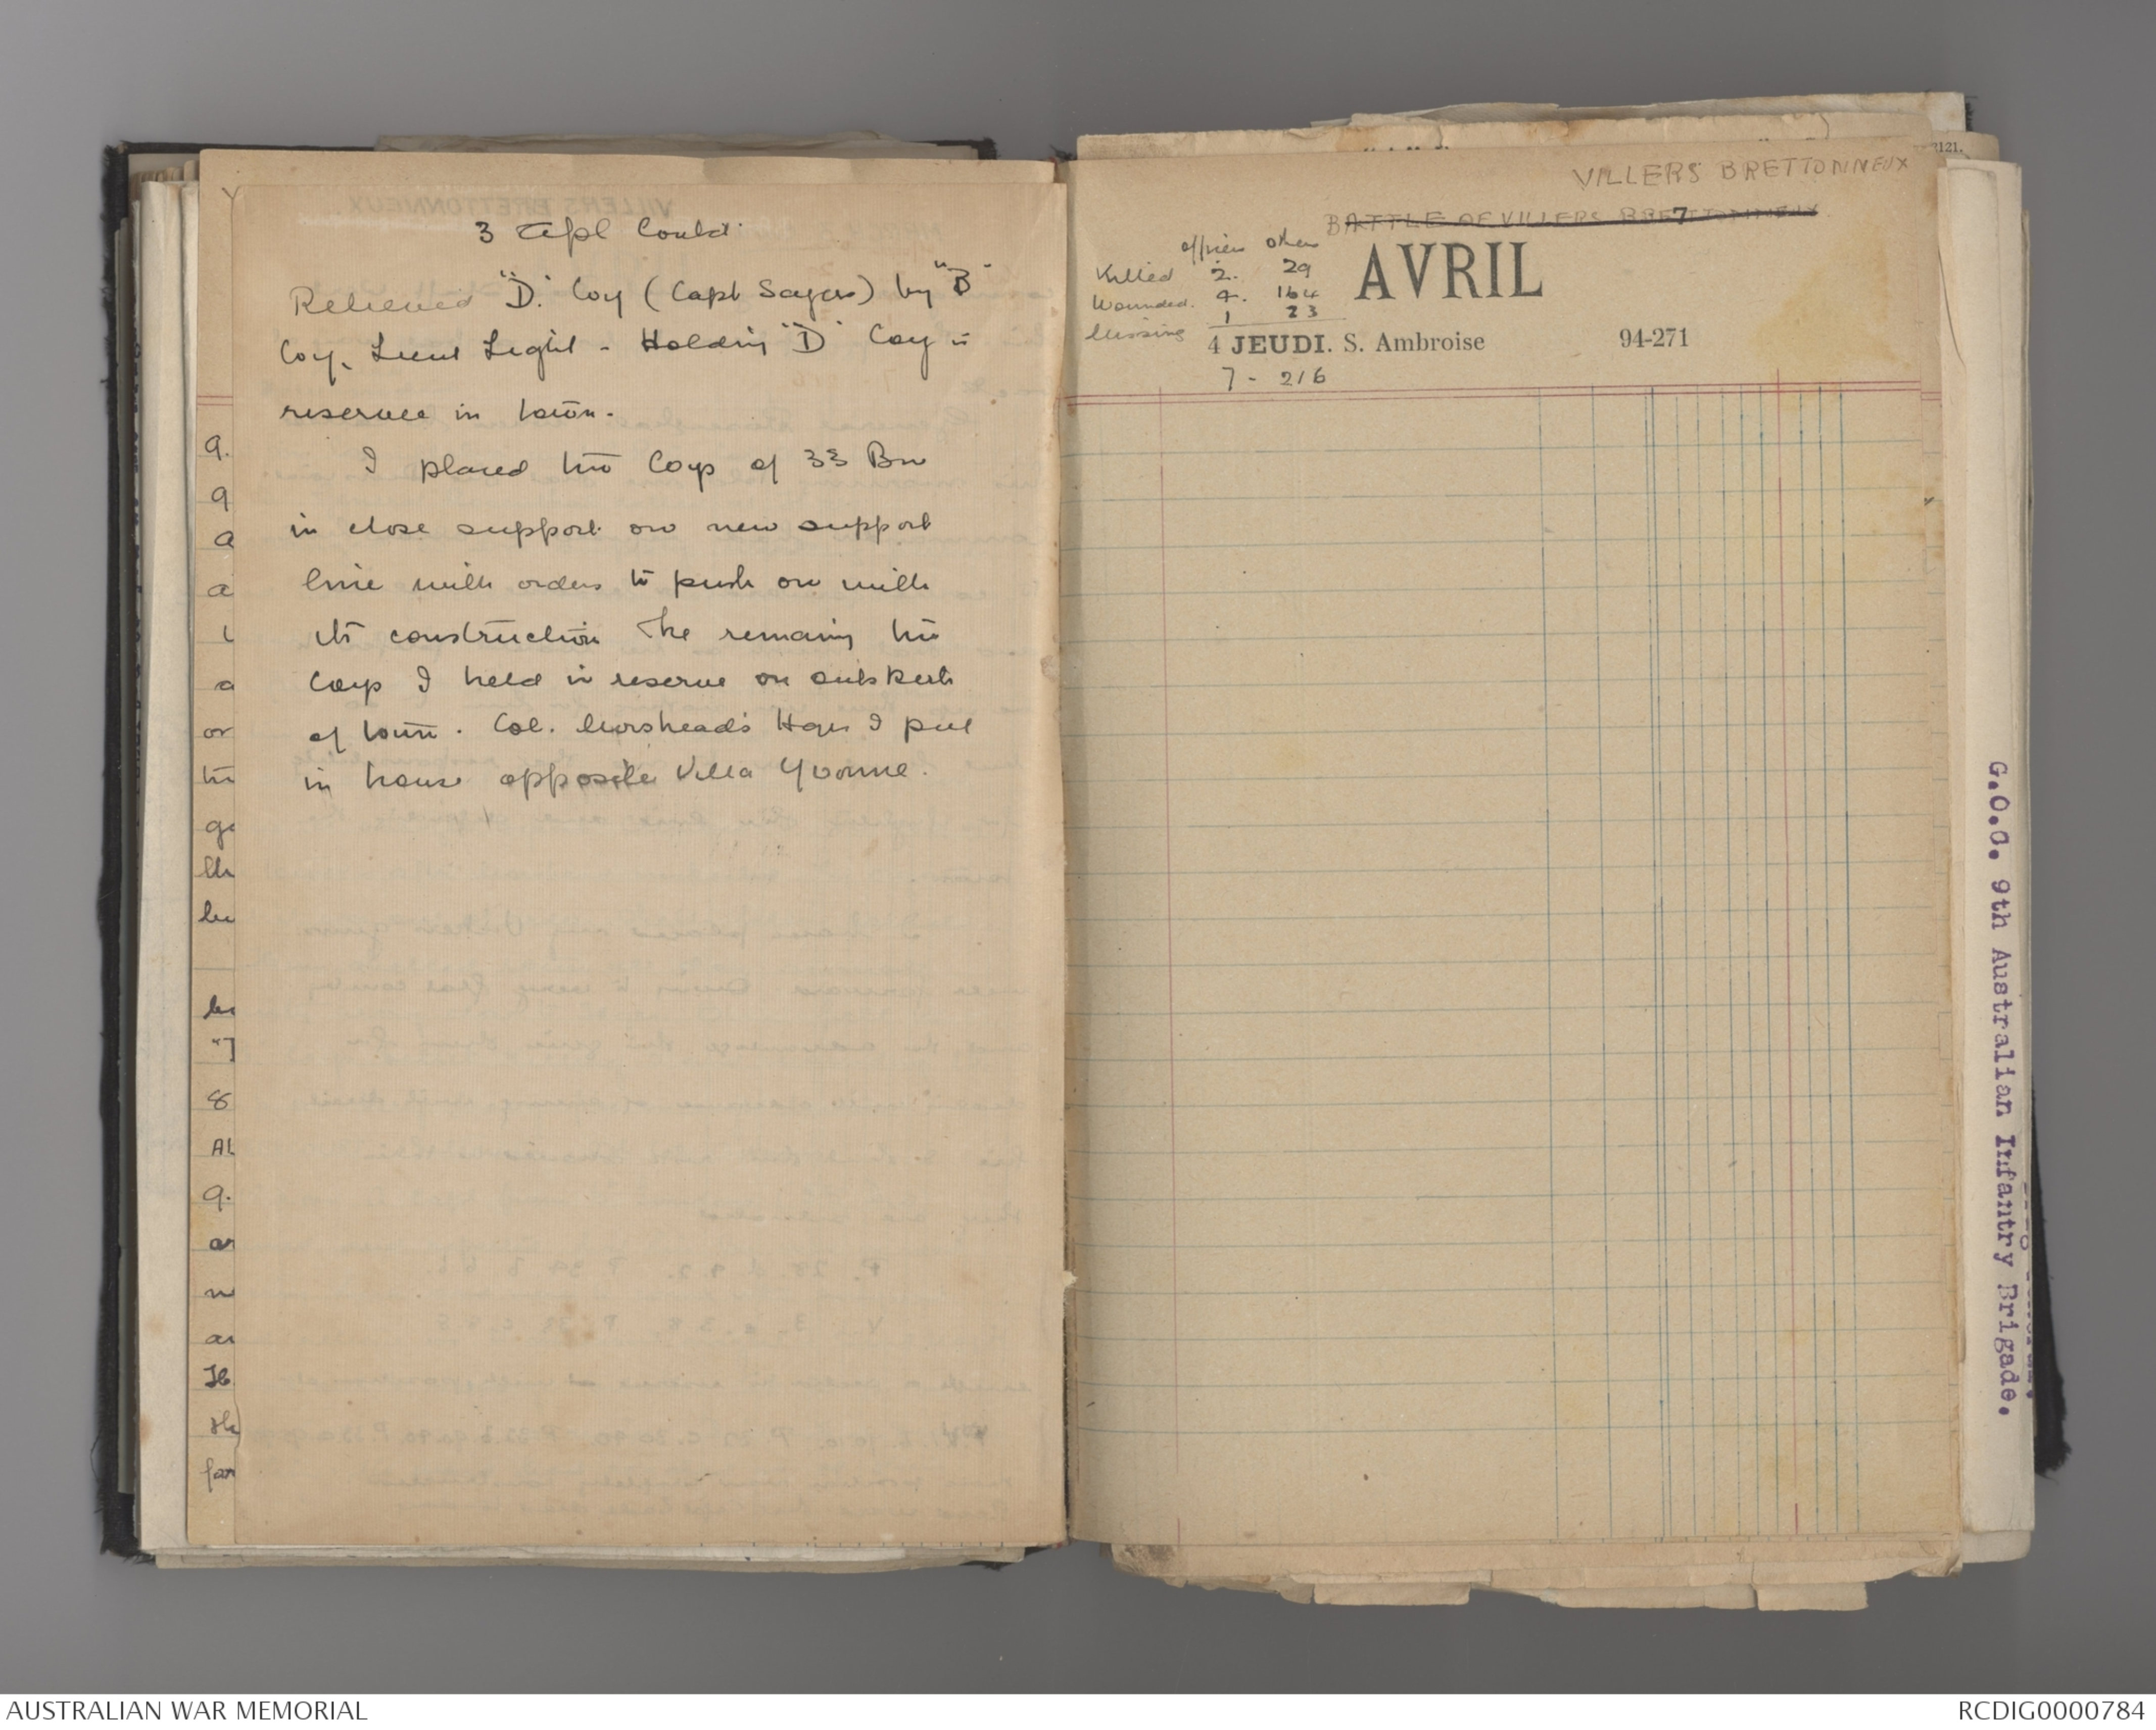 3 Apl Contd.
Relieved "D" Coy (Capt Sayers) by "B"
Coy, Lieut Light - Holding "D" Coy in
reserve in town.
I placed two Coys of 33 Bn
in close support on new support
line with orders to push on with
its construction The remaing two
Coys I held in reserve on outskirts
of town. Col. Morshead's Hqrs I put
in house opposite Villa Yvonne.
VILLERS BRETTONNEUX
BATTLE OF VILLERS BRETTONNEUX
officers others
Killed 2. 29
Wounded. 4. 164
Missing 1 23
AVRIL
4 JEUDI. S. Ambroise 94-271
7 - 216
G.O.C. 9th Australian Infantry Brigade.
3121.
AUSTRALIAN WAR MEMORIAL
RCDIG0000784